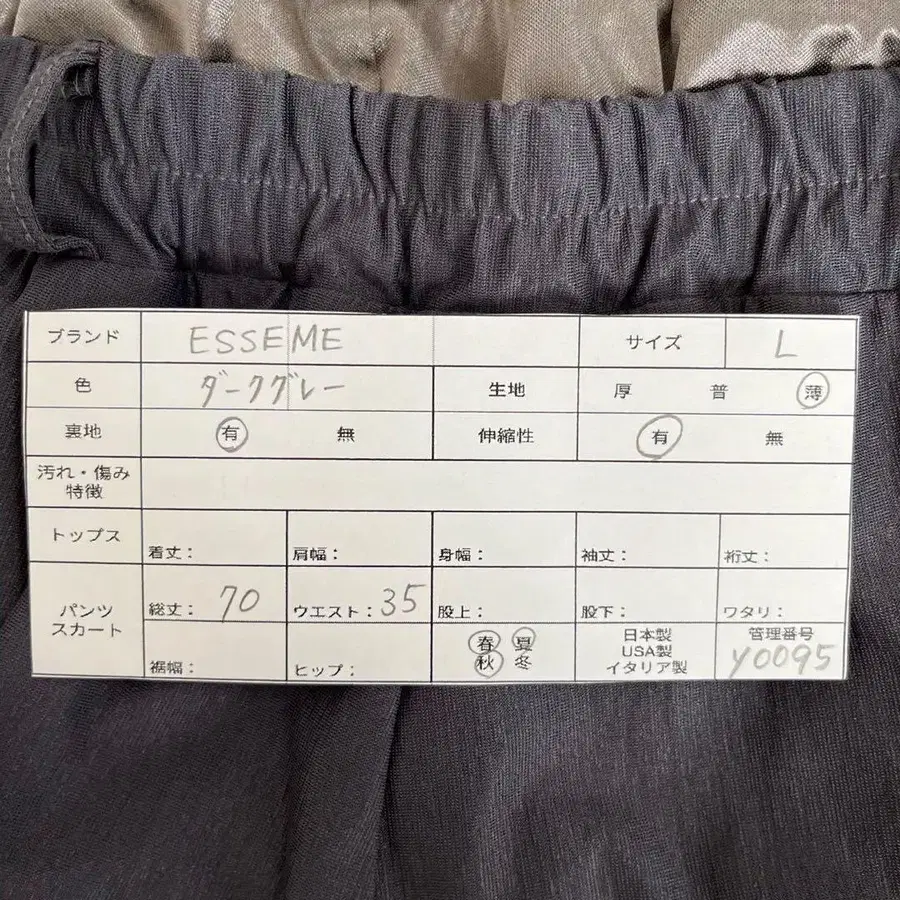 ブランド ESSEME サイズ L
色 ダークグレー 生地 厚 普 薄
裏地 有 無 伸縮性 有 無
汚れ・傷み
特徴
トップス 着丈： 肩幅： 身幅： 袖丈： 裄丈：
パンツ
スカート
総丈： 70 ウエスト： 35 股上： 股下： ワタリ：
裾幅： ヒップ：
春 夏
秋 冬
日本製
USA製
イタリア製
管理番号
y0095